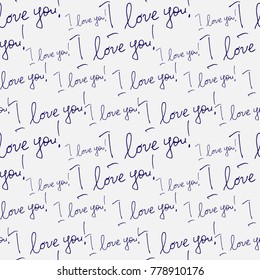 I love you! I love you! I
love you! I love you! I love you!
I love you! I love you! I love you!
I love you! I love you! I love you!
love you! I love you! I
love you! I love you! I love you!
I love you! I love you! I love you!
I love you! I love you! I love you!
love you! I love you! I
shutterstock.com · 778910176